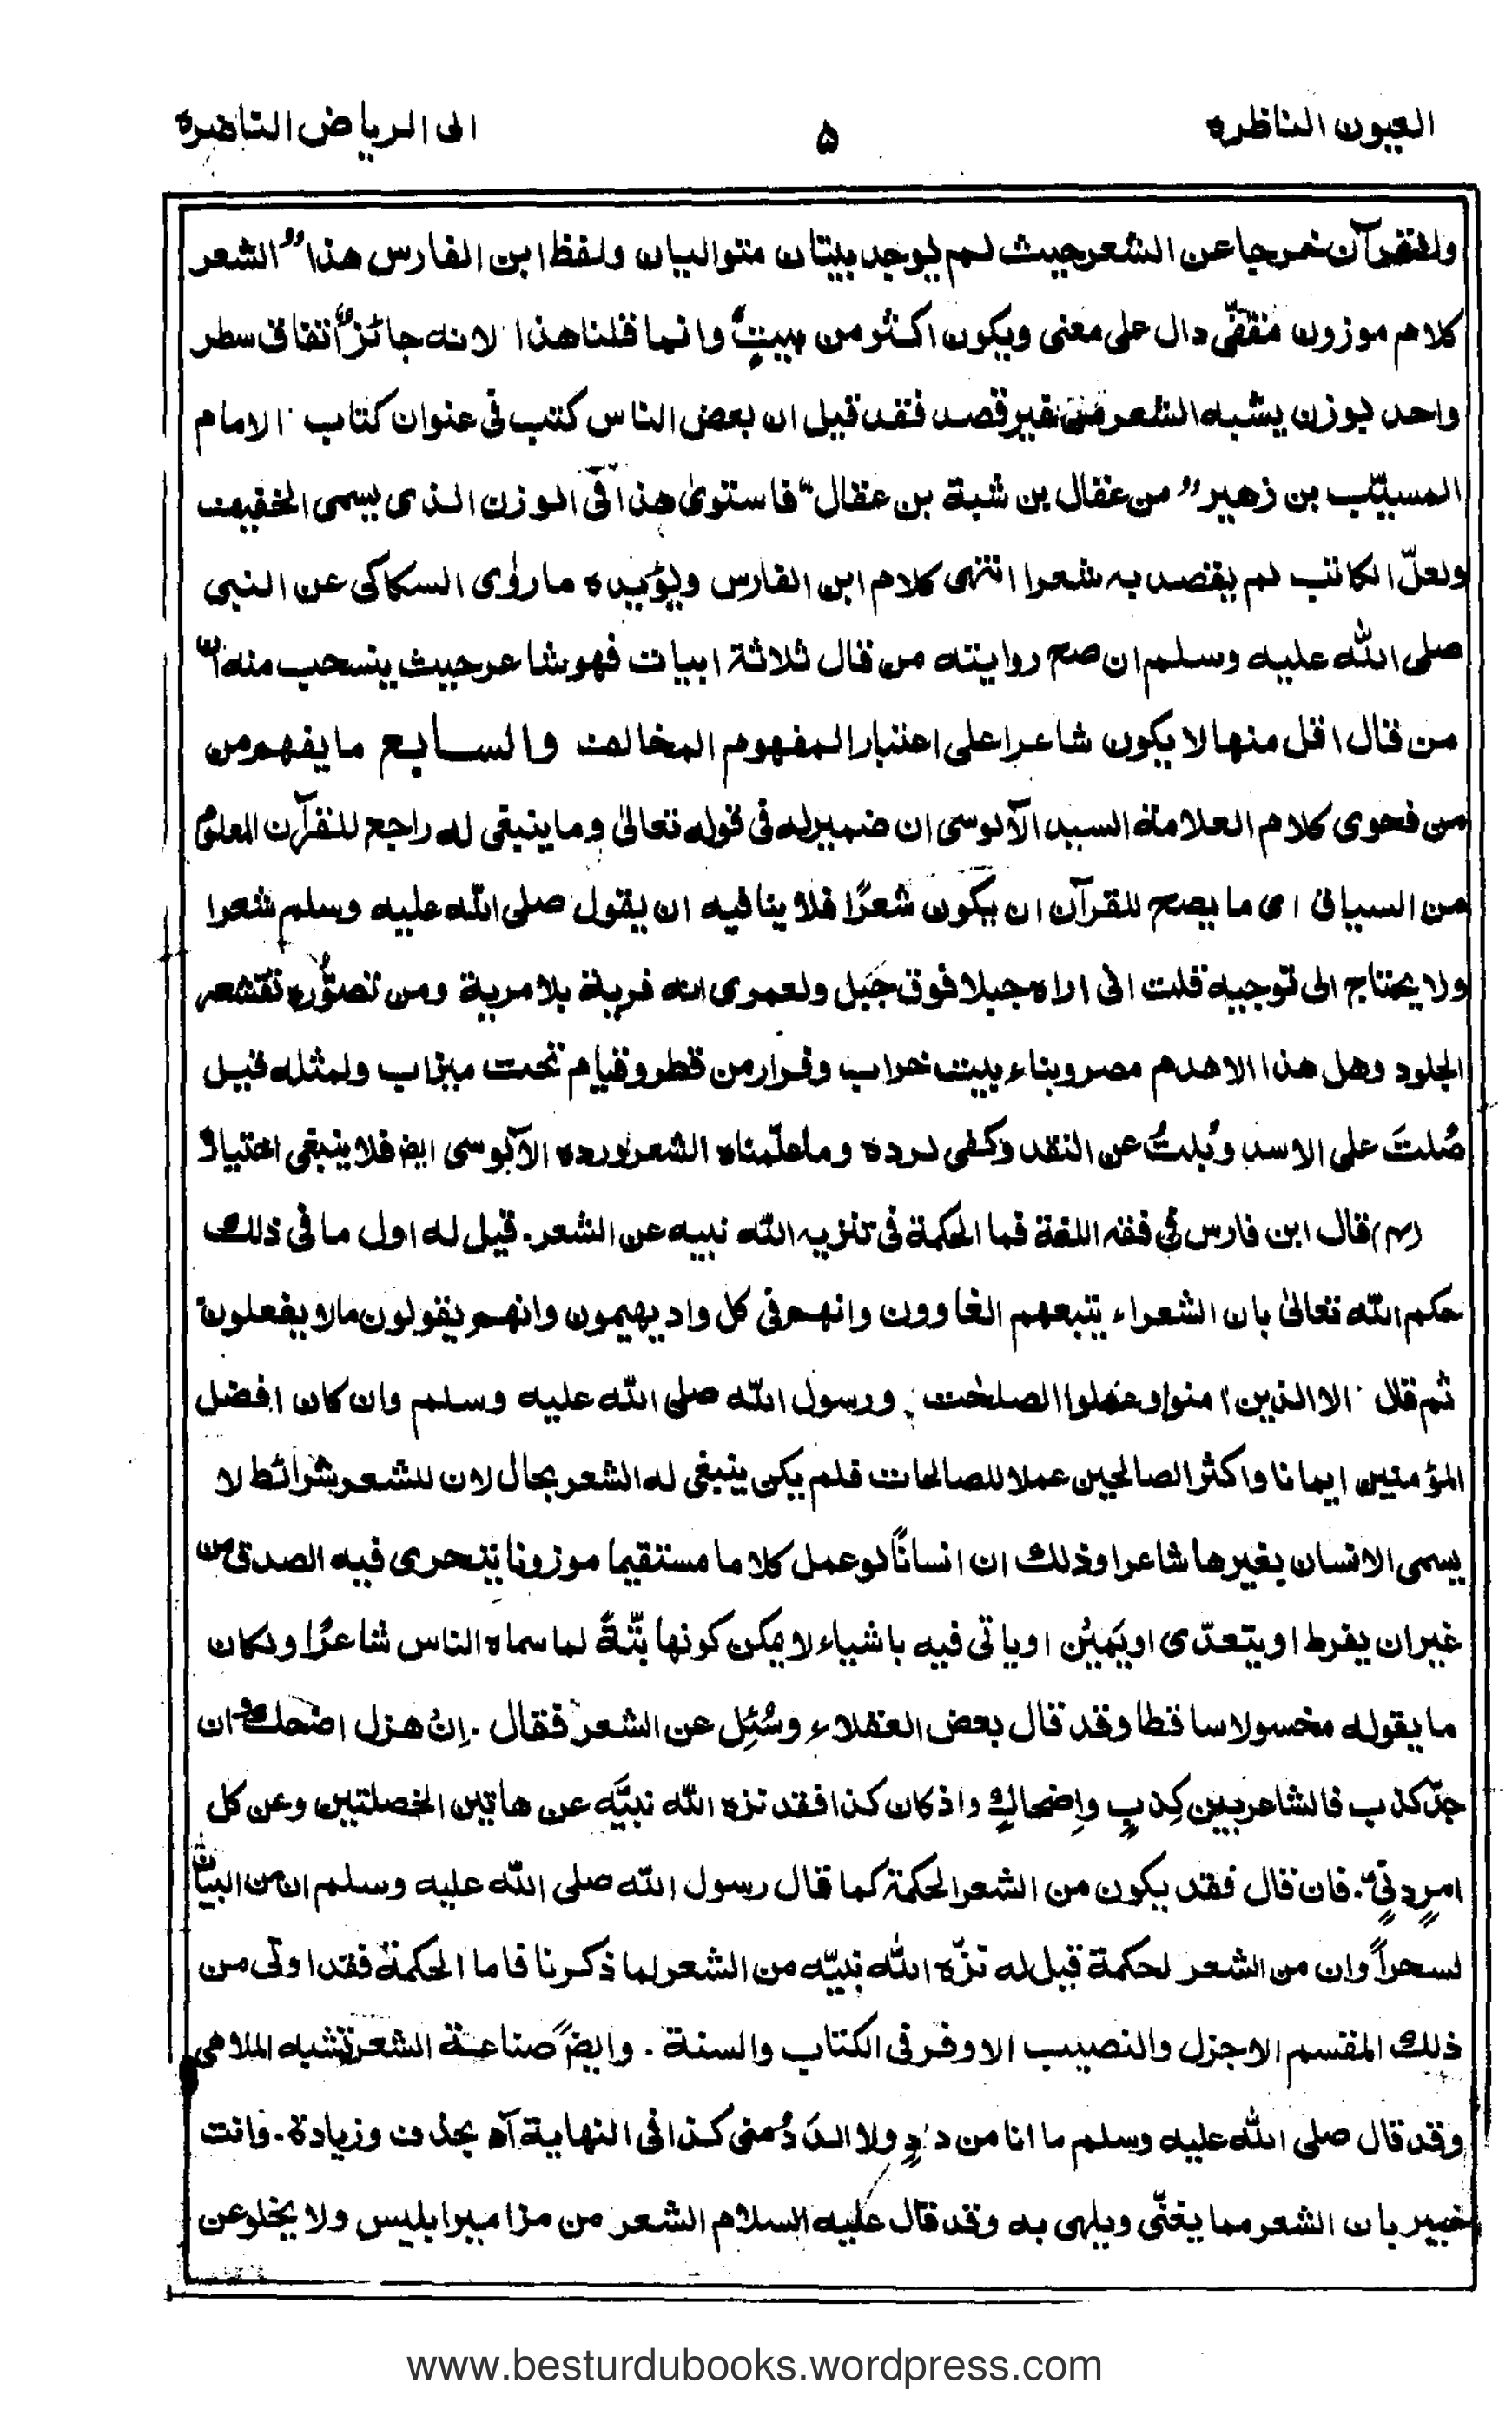 العيون الناظرة ۵ الى الرياض الناضرة
وللقرآن خرجا عن الشعر حيث لم يوجد بيتان متواليان ولفظ ابن الفارس هذا "الشعر
كلام موزون مقفّى دال على معنى ويكون اكثر من بيتٍ وانما قلنا هذا لانه جائز اتفاق سطر
واحد بوزن يشبه الشعر من غير قصد فقد قيل ان بعض الناس كتب فى عنوان كتاب الامام
المسيّب بن زهير "من عقال بن شبة بن عقال" فاستوىٰ هذا فى الوزن الذى يسمى الخفيف
ولعلّ الكاتب لم يقصد به شعرا انتهى كلام ابن الفارس ويؤيده ما روٰى السكاكى عن النبى
صلى الله عليه وسلم ان صح روايته من قال ثلاثة ابيات فهو شاعر حيث ينسحب منه ان
من قال اقل منها لا يكون شاعرا على اعتبار المفهوم المخالف والسابع ما يفهم من
من فحوى كلام العلامة السيد الآلوسى ان ضمير له فى قوله تعالىٰ وما ينبغى له راجع للقرآن المعلوم
من السياق اى ما يصح للقرآن ان يكون شعرًا فلا ينافيه ان يقول صلى الله عليه وسلم شعرا
ولا يحتاج الى توجيه قلت انى اراه جبلا فوق جَبل ولعمرى انه فرية بلا مرية ومن تصوُّره تقشعر
الجلود وهل هذا الا هدم مصر وبناء بيت خراب وفرار من قطر وقيام تحت ميزاب ولمثله قيل
صُلتَ على الاسد وبُلتُ عن النقد وكفى لرده وما علّمناه الشعر ورده الآلوسى ايض فلا ينبغى اختياره
(٣) قال ابن فارس فى فقه اللغة فما الحكمة فى تنزيه الله نبيه عن الشعر. قيل له اول ما فى ذلك
حكم الله تعالىٰ بان الشعراء يتبعهم الغاوون وانهم فى كل واد يهيمون وانهم يقولون مالا يفعلون
ثم قال الا الذين امنوا وعملوا الصلحٰت ورسول الله صلى الله عليه وسلم وان كان افضل
المؤمنين ايمانا واكثر الصالحين عملا للصالحات فلم يكن ينبغى له الشعر بحال لان للشعر شرائط لا
يسمى الانسان بغيرها شاعرا وذلك ان انسانًا لو عمل كلاما مستقيما موزونا يتحرى فيه الصدق من
غير ان يفرط او يتعدّى او يَمِيْن او ياتى فيه باشياء لا يمكن كونها بتّةً لما سماه الناس شاعرًا ولكان
ما يقوله مخسولا ساقطا وقد قال بعض العقلاء وسُئِل عن الشعر فقال . اِنْ هزل اضحك وان
جدّ كذب فالشاعر بين كِذبٍ واِضحاكٍ واذ كان كذا فقد نزه الله نبيَّه عن هاتين الخصلتين وعن كل
امرٍ دنِيٍّ. فان قال فقد يكون من الشعر الحكمة كما قال رسول الله صلى الله عليه وسلم ان من البيان
لسحراً وان من الشعر لحكمة قيل له نزّه الله نبيّه من الشعر لما ذكرنا فاما الحكمة فقد اوتى من
ذلك المقسم الاجزل والنصيب الاوفر فى الكتاب والسنة . وايضً صناعة الشعر تشبه الملاهى
وقد قال صلى الله عليه وسلم ما انا من ددٍ ولا الدَدُ منى كذا فى النهاية آه بحذف وزيادة. وانت
خبير بان الشعر مما يغنّى ويلهى به وقد قال عليه السلام الشعر من مزامير ابليس ولا يخلو عن
www.besturdubooks.wordpress.com